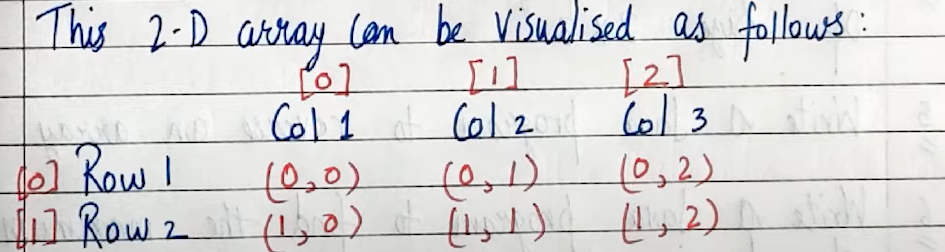 This 2-D array can be visualised as follows:
[0] [1] [2]
Col 1 Col 2 Col 3
[0] Row 1 (0,0) (0,1) (0,2)
[1] Row 2 (1,0) (1,1) (1,2)